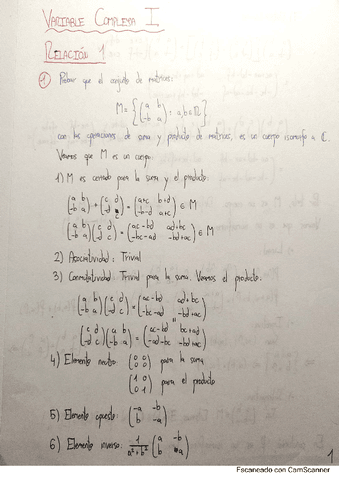 VARIABLE COMPLEJA I
RELACIÓN 1
① Probar que el conjunto de matrices:
M = { ( a b ; -b a ) : a,b ∈ ℝ }
con las operaciones de suma y producto de matrices, es un cuerpo isomorfo a ℂ.
Veamos que M es un cuerpo:
1) M es cerrado para la suma y el producto:
( a b ; -b a ) + ( c d ; -d c ) = ( a+c b+d ; -b-d a+c ) ∈ M
( a b ; -b a ) ( c d ; -d c ) = ( ac-bd ad+bc ; -bc-ad -bd+ac ) ∈ M
2) Asociatividad: Trivial
3) Conmutatividad: Trivial para la suma. Veamos el producto:
( a b ; -b a ) ( c d ; -d c ) = ( ac-bd ad+bc ; -bc-ad -bd+ac )
"
( c d ; -d c ) ( a b ; -b a ) = ( ac-bd bc+ad ; -ad-bc -bd+ac )
4) Elemento neutro: ( 0 0 ; 0 0 ) para la suma
( 1 0 ; 0 1 ) para el producto
5) Elemento opuesto: ( -a -b ; b -a )
6) Elemento inverso: 1/(a²+b²) ( a -b ; b a )
1
Escaneado con CamScanner